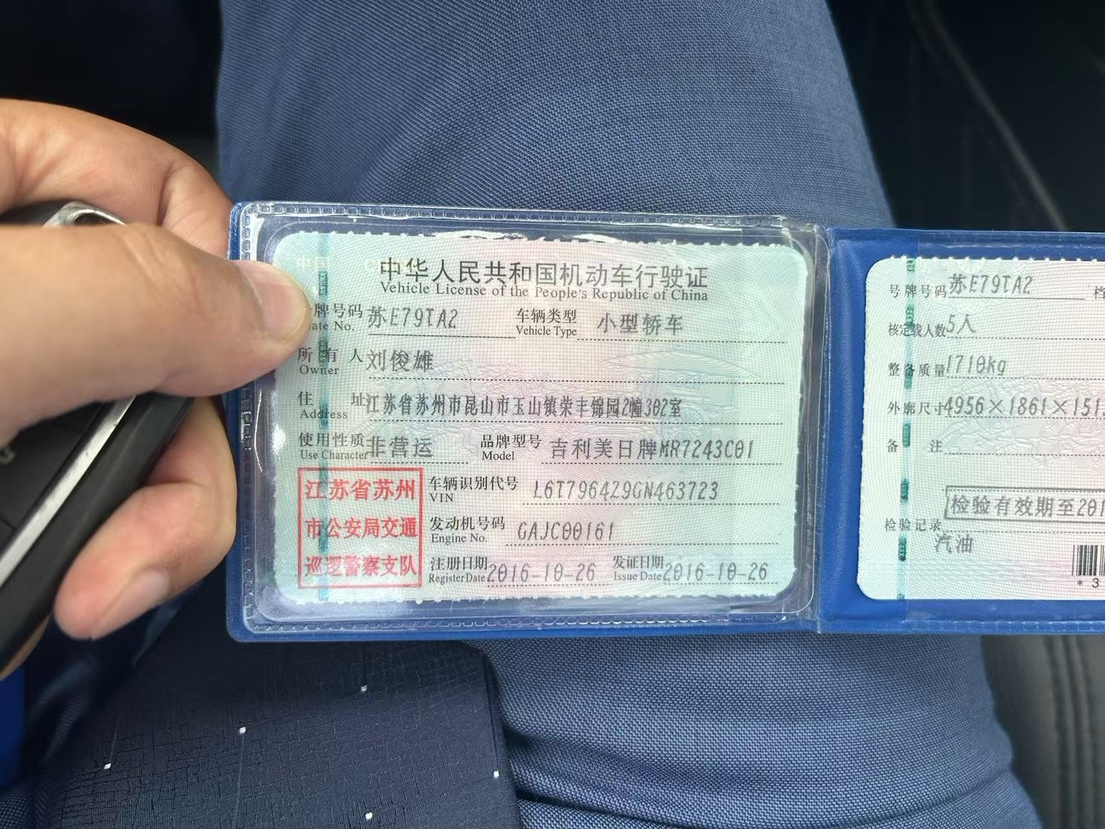 中华人民共和国机动车行驶证
Vehicle License of the People's Republic of China
牌号码 苏E79TA2 车辆类型 小型轿车
ate No. Vehicle Type
所有人 刘俊雄
Owner
住址 江苏省苏州市昆山市玉山镇荣丰锦园2幢302室
Address
使用性质 非营运 品牌型号 吉利美日牌MR7243C01
Use Character Model
江苏省苏州
市公安局交通
巡逻警察支队
车辆识别代号 L6T7964Z9GN463723
VIN
发动机号码 GAJC00161
Engine No.
注册日期 2016-10-26 发证日期 2016-10-26
Register Date Issue Date
号牌号码 苏E79TA2 档
核定载人数 5人
整备质量 1710kg
外廓尺寸 4956×1861×151
备注
检验有效期至201
检验记录
汽油
*3